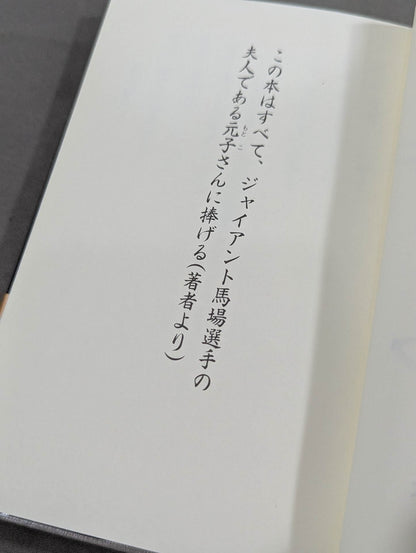 この本はすべて、ジャイアント馬場選手の
夫人である元子さんに捧げる(著者より)
もとこ